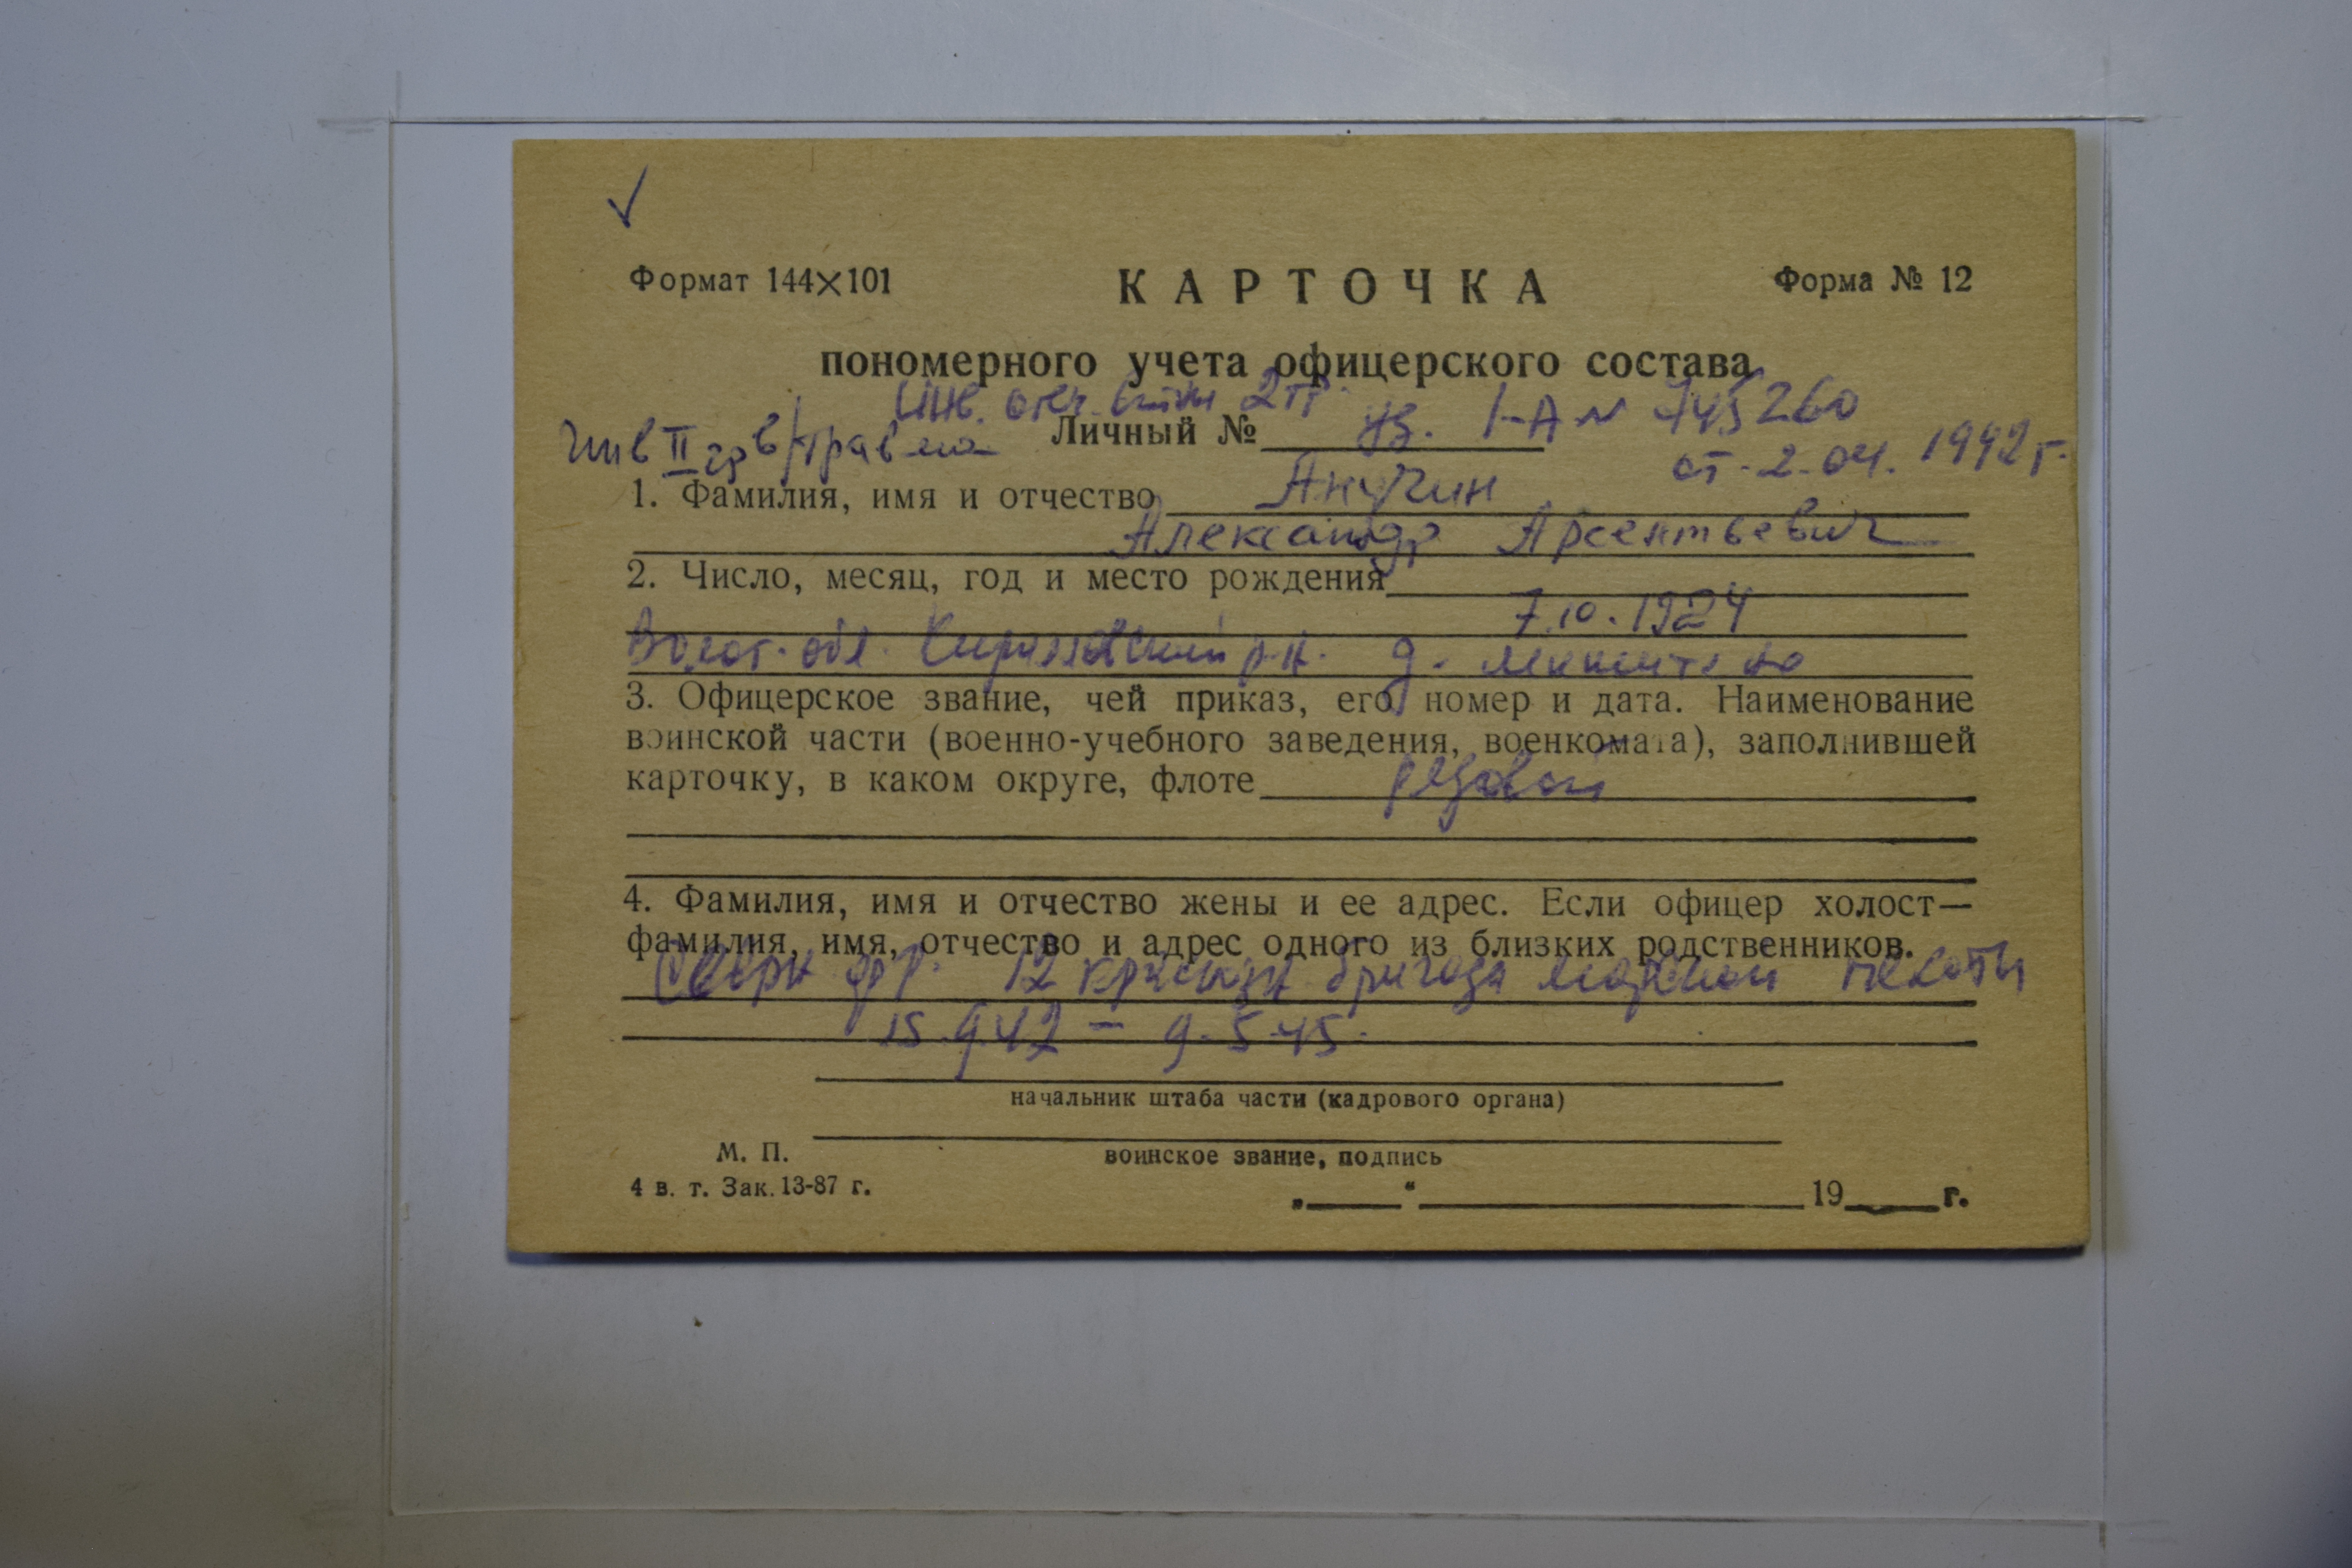 Формат 144×101 КАРТОЧКА Форма № 12
пономерного учета офицерского состава
2 гр.
Инв II гр в/травма Личный № уд. I-А № 745260
от 2.04. 1992 г.
1. Фамилия, имя и отчество Анучин
Александр Арсентьевич
2. Число, месяц, год и место рождения
7.10.1924
Волог. обл. Кирилловский р-н. д.
3. Офицерское звание, чей приказ, его номер и дата. Наименование
воинской части (военно-учебного заведения, военкомата), заполнившей
карточку, в каком округе, флоте рядовой
4. Фамилия, имя и отчество жены и ее адрес. Если офицер холост—
фамилия, имя, отчество и адрес одного из близких родственников.
Северн фл. 12 краснозн бригада морской пехоты
15.9.42 - 9.5.45.
начальник штаба части (кадрового органа)
М. П. воинское звание, подпись
4 в. т. Зак. 13-87 г.
„ “ 19 г.